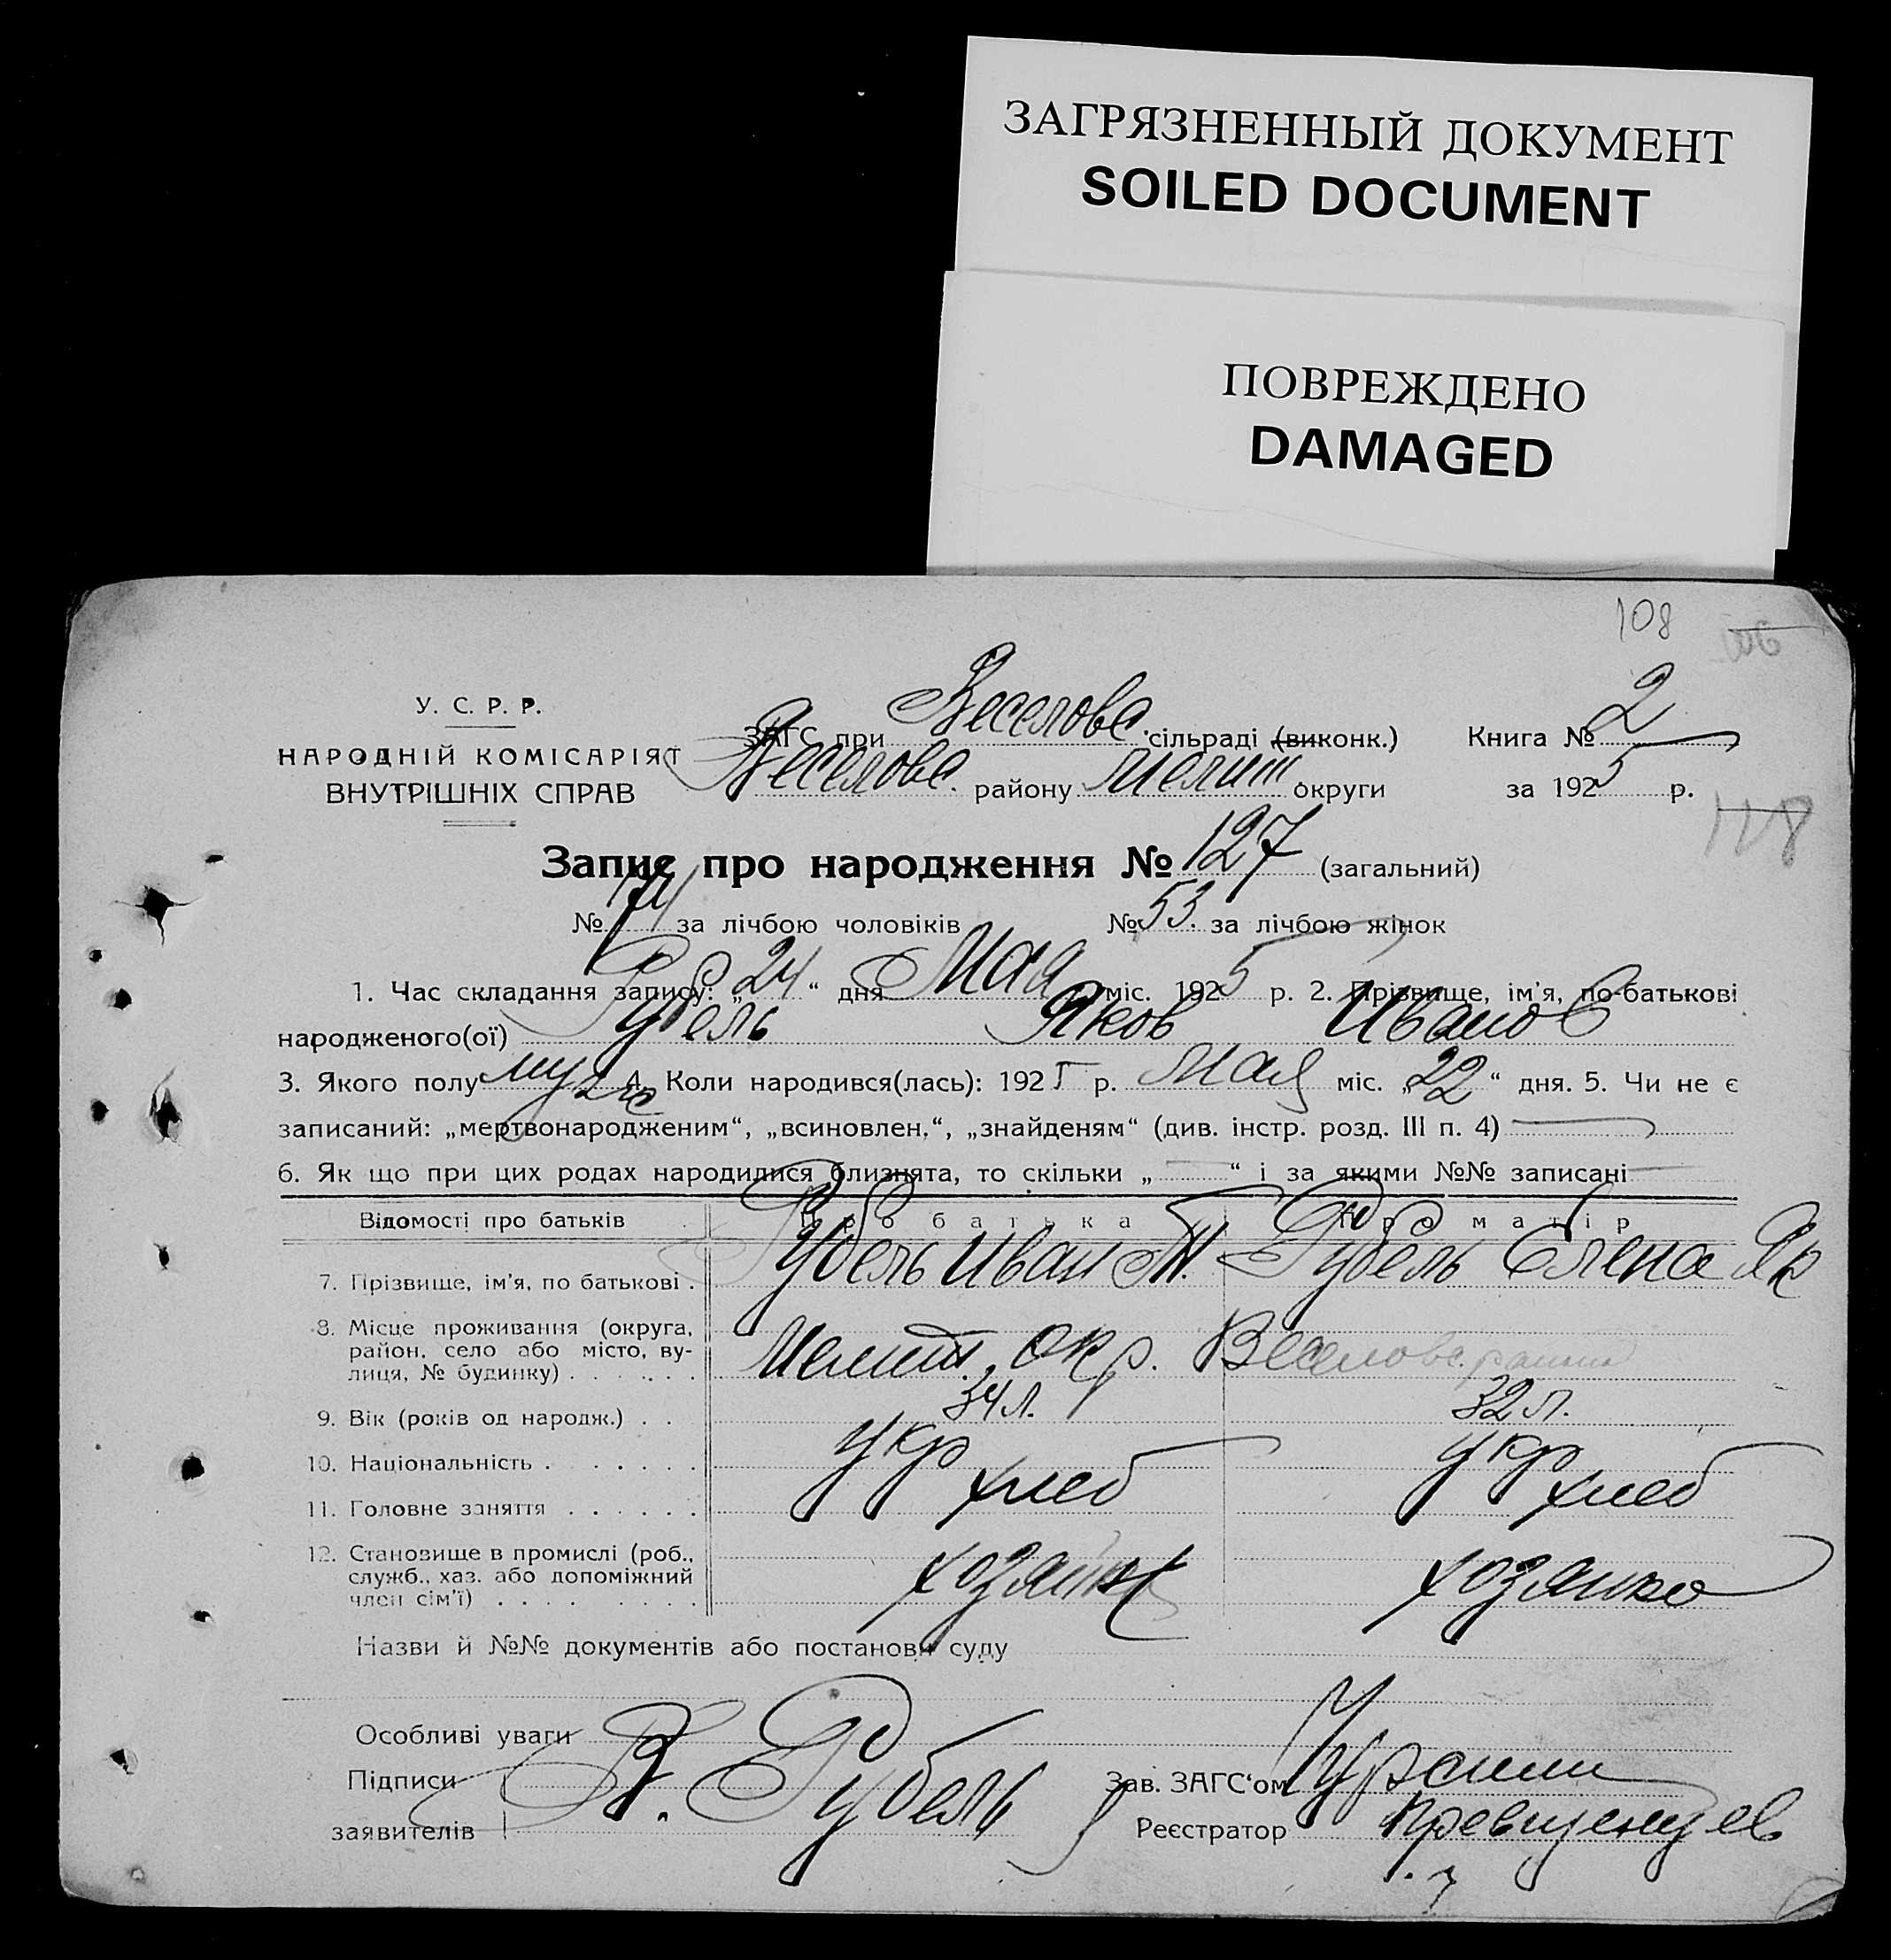 ЗАГРЯЗНЕННЫЙ ДОКУМЕНТ
SOILED DOCUMENT
ПОВРЕЖДЕНО
DAMAGED
108
У. С. Р. Р.
НАРОДНІЙ КОМІСАРІЯТ
ВНУТРІШНІХ СПРАВ
ЗАГС при Веселовс. сільраді (виконк.) Книга № 2
Веселовс. району Мелит округи за 1925 р.
118
Запис про народження № 127 (загальний)
№ 74 за лічбою чоловіків № 53. за лічбою жінок
1. Час складання запису: „24“ дня Мая міс. 1925 р. 2. Прізвище, ім'я, по-батькові
народженого(ої) Рубель Яков Иванов
3. Якого полу муж 4. Коли народився(лась): 1925 р. Мая міс. „22“ дня. 5. Чи не є
записаний: „мертвонародженим“, „всиновлен.“, „знайденям“ (див. інстр. розд. III п. 4)
6. Як що при цих родах народилися близнята, то скільки „ “ і за якими №№ записані
Відомості про батьків Про батька Про матір
7. Прізвище, ім'я, по батькові . Рубель Иван Т. Рубель Елена Як
8. Місце проживання (округа,
район, село або місто, ву-
лиця, № будинку) . . . . . . Мелит. окр. Веселовс. района
9. Вік (років од народж.) . . 34 л. 32 л.
10. Національність . . . . . . укр укр
11. Головне заняття . . . . . . хлеб хлеб
12. Становище в промислі (роб.,
служб., хаз. або допоміжний
член сім'ї) . . . . . . . . хозяин хозяйка
Назви й №№ документів або постанови суду
Особливі уваги
Підписи Рубель Зав. ЗАГС'ом
заявителів Реєстратор